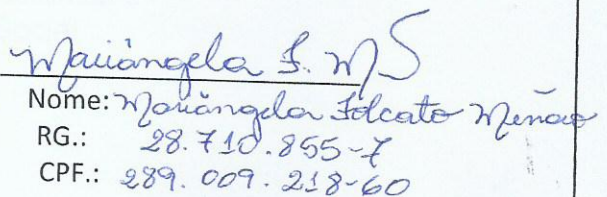 Mariângela F. M
Nome: Mariângela Folcato Menão
RG.: 28.710.855-7
CPF.: 289.009.218-60